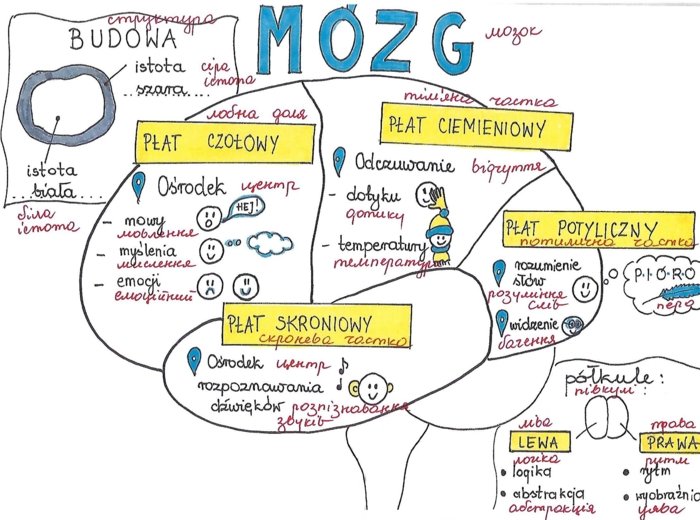 MÓZG
мозок
структура
BUDOWA
istota сіра
szara істота
istota
biała
біла
істота
лобна доля
PŁAT CZOŁOWY
Ośrodek центр
- mowy
мовлення
HEJ!
- myślenia
мислення
- emocji
емоційний
тім'яна частка
PŁAT CIEMIENIOWY
Odczuwanie відчуття
- dotyku
дотику
- temperatury
температури
PŁAT POTYLICZNY
потилична частка
rozumienie
słów
розуміння
слів
widzenie
бачення
P·I·Ó·R·O
перо
PŁAT SKRONIOWY
скронева частка
Ośrodek центр
rozpoznawania
dźwięków розпізнавання
звуків
półkule:
півкулі:
ліва
LEWA
логіка
• logika
• abstrakcja
абстракція
права
PRAWA
ритм
• rytm
• wyobraźnia
уява